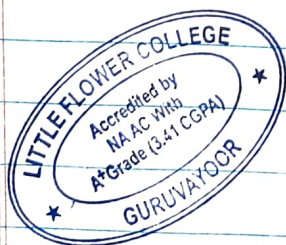 LITTLE FLOWER COLLEGE
Accredited by
NA AC With
A+Grade (3.41 CGPA)
GURUVAYOOR